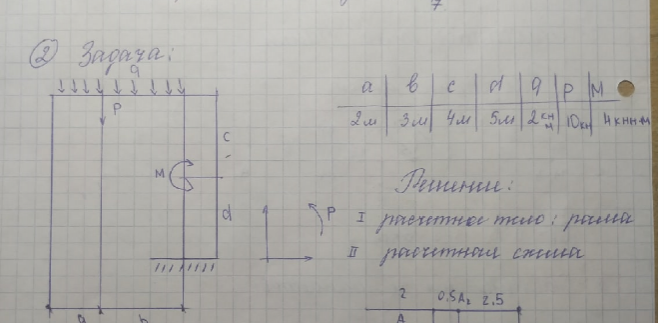 ② Задача:
q
a в c d q P M
2м 3м 4м 5м 2 кн/м 10кн 4 кн·м
P
c
M
d
P
Решение:
I расчетное тело: рама
II расчетная схема
2 0.5 A₂ 2.5
A
a b